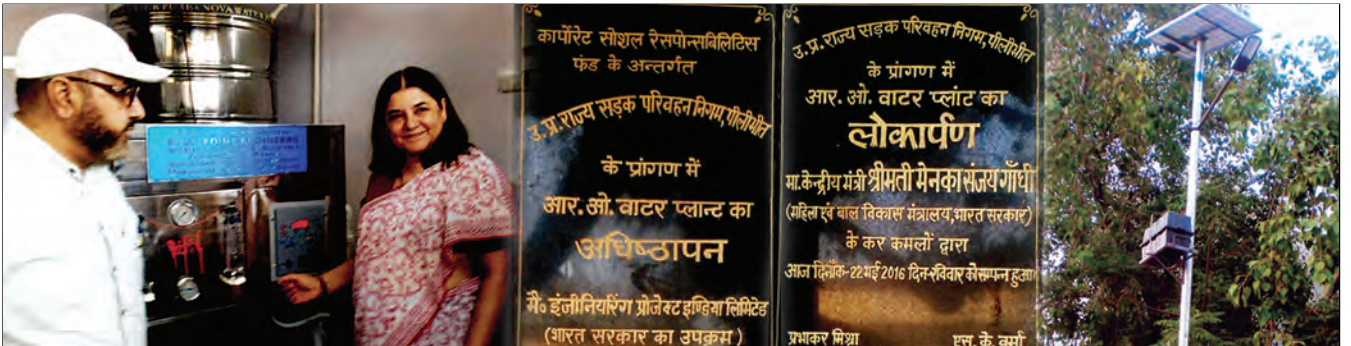 कार्पोरेट सोशल रेसपोन्सबिलिटिस
फंड के अन्तर्गत
उ.प्र.राज्य सड़क परिवहन निगम,पीलीभीत
के प्रांगण में
आर.ओ.वाटर प्लान्ट का
अधिष्ठापन
मै० इंजीनियरिंग प्रोजेक्ट इण्डिया लिमिटेड
(भारत सरकार का उपक्रम)
उ.प्र.राज्य सड़क परिवहन निगम,पीलीभीत
के प्रांगण में
आर.ओ. वाटर प्लांट का
लोकार्पण
मा.केन्द्रीय मंत्री श्रीमती मेनका संजय गाँधी
(महिला एंव बाल विकास मंत्रालय,भारत सरकार)
के कर कमलों द्वारा
आज दिनाँक-22 मई 2016 दिन-रविवार को सम्पन्न हुआ
प्रभाकर मिश्रा
एस. के. वर्मा